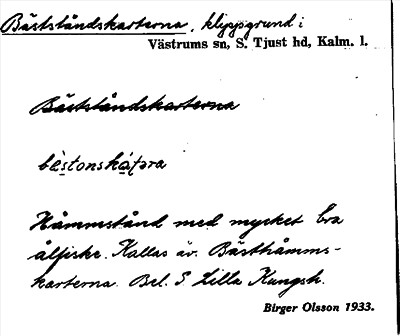 Bästståndskarterna, klippgrund i
Västrums sn, S. Tjust hd, Kalm. l.
Bästståndskarterna
Håmmstånd med mycket bra
ålfiske. Kallas äv. Bästhåmms-
karterna. Bel. S Lilla Kungsh.
Birger Olsson 1933.